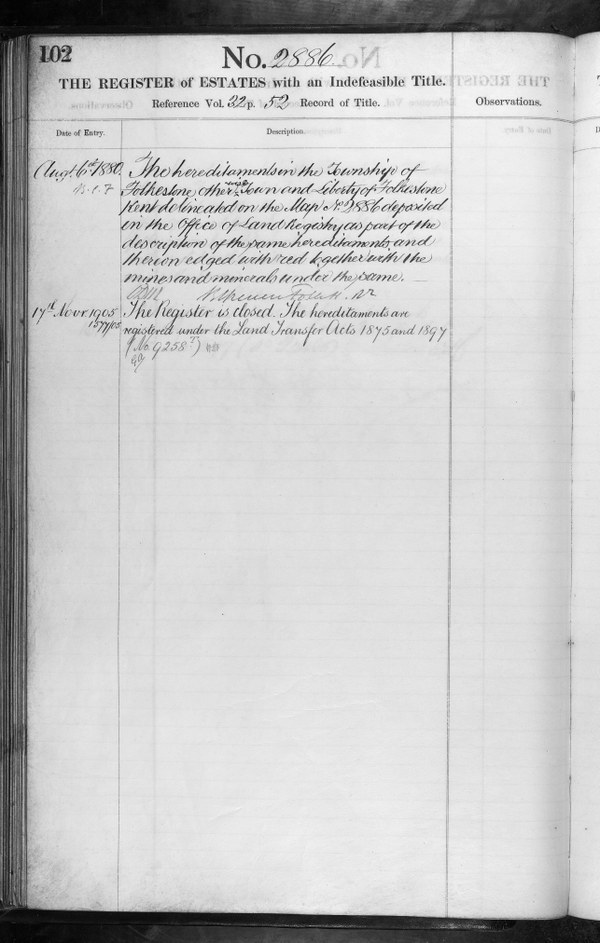 102
No. 2886
THE REGISTER of ESTATES with an Indefeasible Title.
Reference Vol. 22 p. 52 Record of Title.
Observations.
Date of Entry.
Description.
Augt. 6th 1880.
The hereditaments in the Township of
Folkestone otherwise Town and Liberty of Folkestone
Kent delineated on the Map No. 2886 deposited
in the Office of Land Registry as part of the
description of the same hereditaments and
thereon edged with red together with the
mines and minerals under the same.
17th Novr 1905
1577/05
The Register is closed. The hereditaments are
registered under the Land Transfer Acts 1875 and 1897
(No. 9258